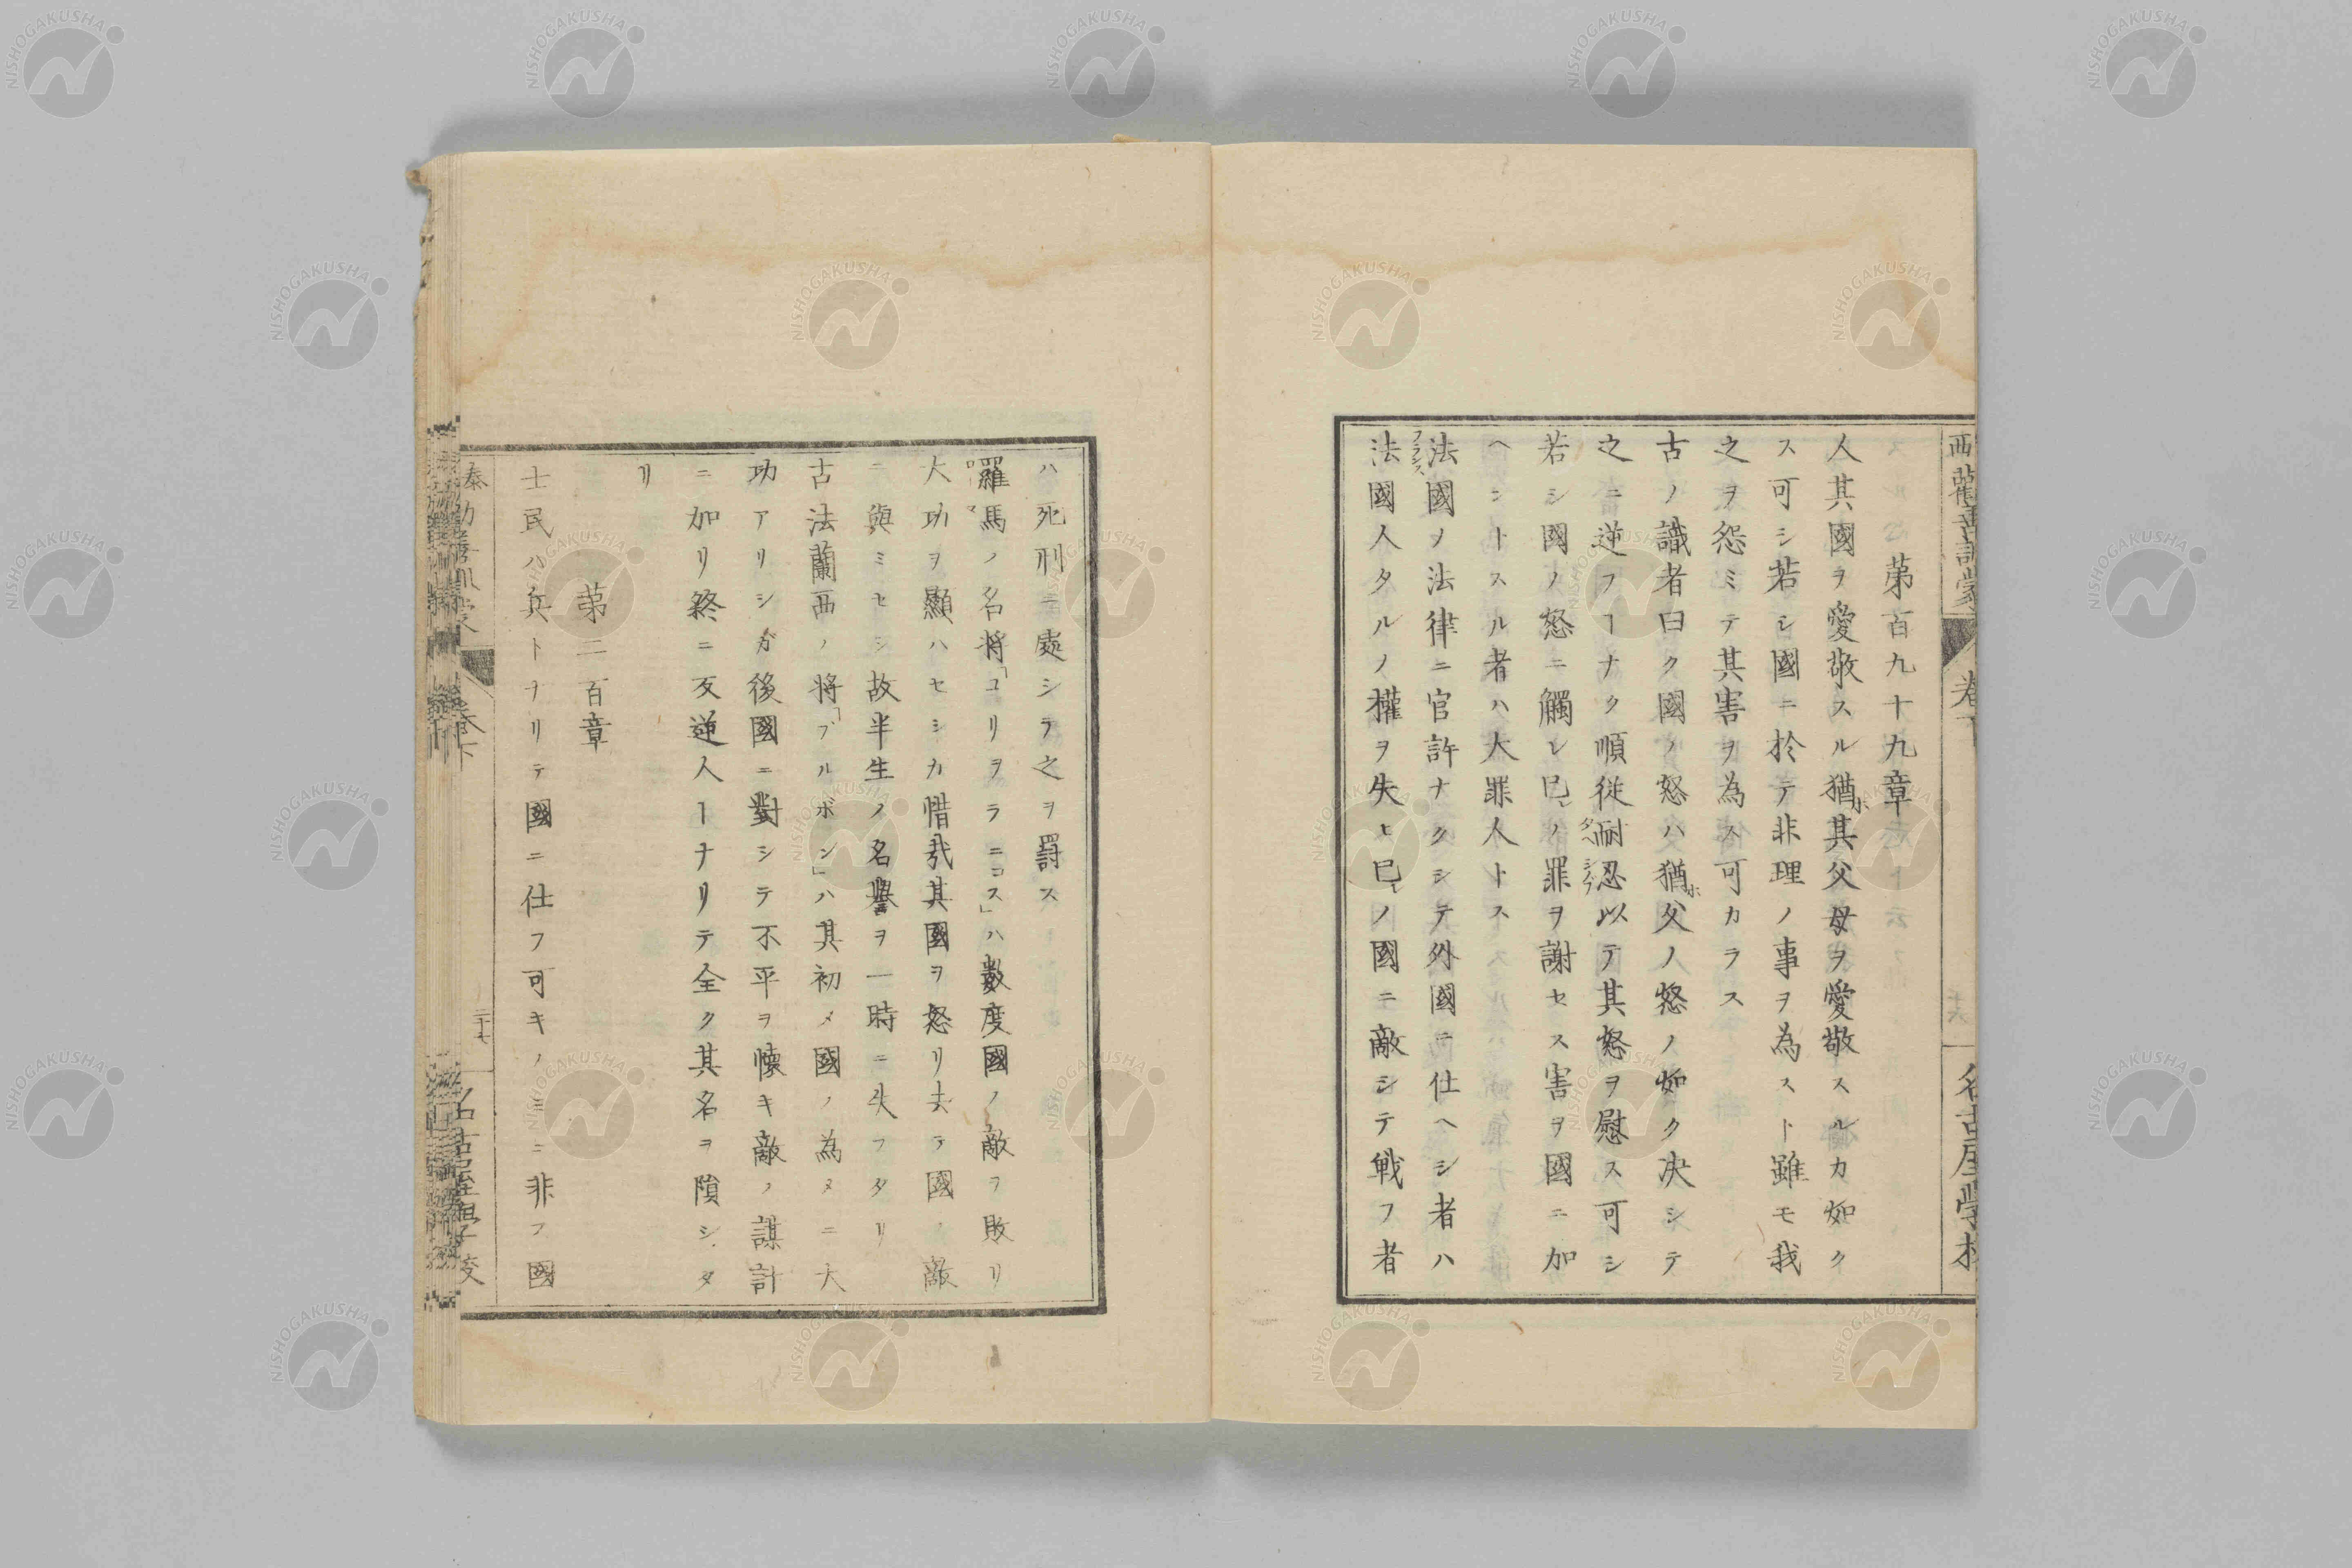 第百九十九章
人其國ヲ愛敬スル猶ホ其父母ヲ愛敬スルカ如ク
ス可シ若シ國ニ於テ非理ノ事ヲ為スト雖モ我
之ヲ怨ミテ其害ヲ為ス可カラス
古ノ識者曰ク國ノ怒ハ猶ホ父ノ怒ノ如ク决シテ
之ニ逆フヿナク順従耐忍以テ其怒ヲ慰ス可シ
若シ國ノ怒ニ觸レ已レノ罪ヲ謝セス害ヲ國ニ加
ヘントスル者ハ大罪人トス
法國ノ法律ニ官許ナクシテ外國ニ仕ヘシ者ハ
法國人タルノ權ヲ失ヒ已レノ國ニ敵シテ戦フ者
ハ死刑ニ處シテ之ヲ罰ス
羅馬ノ名将「コリヲラニュス」ハ數度國ノ敵ヲ敗リ
大功ヲ顯ハセシカ惜哉其國ヲ怒リ去テ國ノ敵
ニ與ミセシ故半生ノ名譽ヲ一時ニ失フタリ
古法蘭西ノ将「ブルボン」ハ其初メ國ノ為メニ大
功アリシガ後國ニ對シテ不平ヲ懐キ敵ノ謀計
ニ加リ終ニ反逆人ーナリテ全ク其名ヲ隕シタ
リ
第二百章
士民ハ兵トナリテ國ニ仕フ可キノミニ非フ國
卷下
名古屋學校
NISHOGAKUSHA